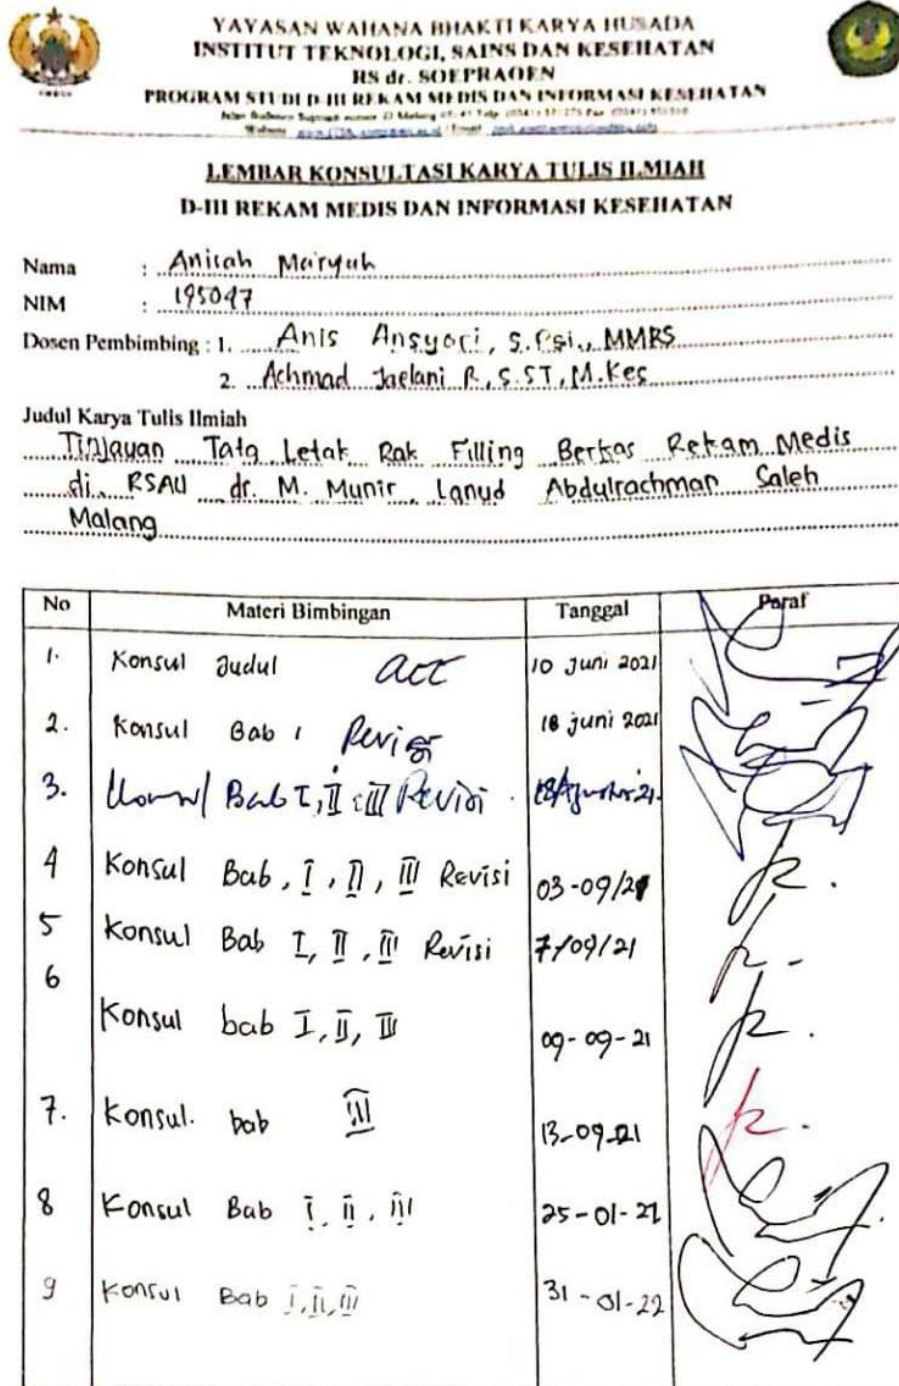 YAYASAN WAHANA BHAKTI KARYA HUSADA
INSTITUT TEKNOLOGI, SAINS DAN KESEHATAN
RS dr. SOEPRAOEN
PROGRAM STUDI D-III REKAM MEDIS DAN INFORMASI KESEHATAN
LEMBAR KONSULTASI KARYA TULIS ILMIAH
D-III REKAM MEDIS DAN INFORMASI KESEHATAN
Nama : Anisah Mar'yah
NIM : 195047
Dosen Pembimbing : 1. Anis Ansyori, S.Psi., MMRS
2. Achmad Jaelani R, S.ST, M.Kes
Judul Karya Tulis Ilmiah
Tinjauan Tata Letak Rak Filling Berkas Rekam Medis
di RSAU dr. M. Munir Lanud Abdulrachman Saleh
Malang
No Materi Bimbingan Tanggal Paraf
1. Konsul Judul acc 10 Juni 2021
2. Konsul Bab 1 Revisi 18 juni 2021
3. Konsul Bab I, II, III Revisi 18/Agustus 21.
4 Konsul Bab, I, II, III Revisi 03-09/21
5 Konsul Bab I, II, III Revisi 7/09/21
6 Konsul bab I, II, III 09-09-21
7. Konsul. bab III 13-09-21
8 Konsul Bab I, II, III 25-01-22
9 Konsul Bab I, II, III 31-01-22